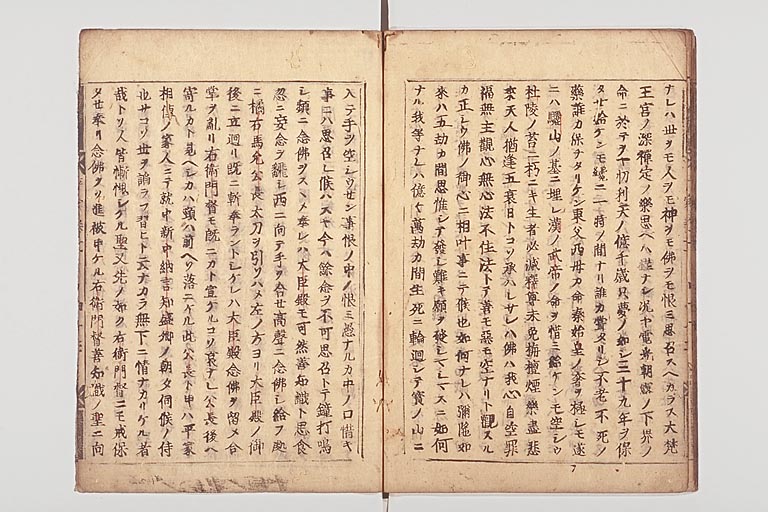 ナレハ世ヲモ人ヲモ神ヲモ佛ヲモ恨ミ思召スヘカラス大梵
王宮ノ深禪定ノ樂思ヘハ幾ナシ況ヤ電光朝露ノ下界ノ
命ニ於テヲヤ忉利天ノ億千歳只夢ノ如シ三十九年ヲ保
タせ給ケンモ纔ニ一時ノ間ナリ誰カ嘗タリシ不老不死ノ
藥誰カ保ナタリケン東父西母カ命秦始皇ノ奢ヲ極シモ遂
ニハ驪山ノ墓ニ埋レ漢ノ武帝ノ命ヲ惜ミ給ケンモ空シウ
杜陵ノ苔ニ朽ニキ生者必滅釋尊未免栴檀煙樂盡悲
來天人猶逢五衰日トコソ承ハレサレハ佛ハ我心自空罪
福無主觀心無心法不住法トテ善モ惡モ空ナリト觀スル
カ正シウ佛ノ御心ニ相叶事ニテ候也如何ナレハ彌陀如
來ハ五劫カ間思惟シテ發シ難キ願ヲ發シマシマスニ如何
ナル我等ナレハ億々萬劫カ間生死ニ輪迴シテ寳ノ山ニ
入テ手ヲ空シウせン事恨ノ中ノ恨ミ愚ナルカ中ノ口惜キ
事ニハ思召シ候ハスヤ今ハ餘念ヲ不可思召トテ鐘打鳴
シ頻ニ念佛ヲスヽメ奉レハ大臣殿モ可然善知識ト思食
忽ニ妄念ヲ飜シ西ニ向テ手ヲ合せ高聲ニ念佛シ給フ處
ニ橘右馬允公長太刀ヲ引ソハメ左ノ方ヨリ大臣殿ノ御
後ニ立迴リ既ニ斬奉ラントシケレハ大臣殿念佛ヲ留メ合
掌ヲ亂リ右衛門督モ既ニカト宣ケルコソ哀ナレ公長後ヘ
寄ルカト見ヘシカハ頭ハ前ヘソ落ニケル此公長ト申ハ平家
相傳ノ家人ニテ就中新中納言知盛卿ノ朝夕伺候ノ侍
也サコソ世ヲ諂ラフ習ヒト云ナカラ無下ニ情ナカリケル者
哉トソ人皆慚愧シケル聖又先ノ如ク右衛門督ニモ戒保
タせ奉リ念佛ヲソ進被申ケル右衛門督善知識ノ聖ニ向